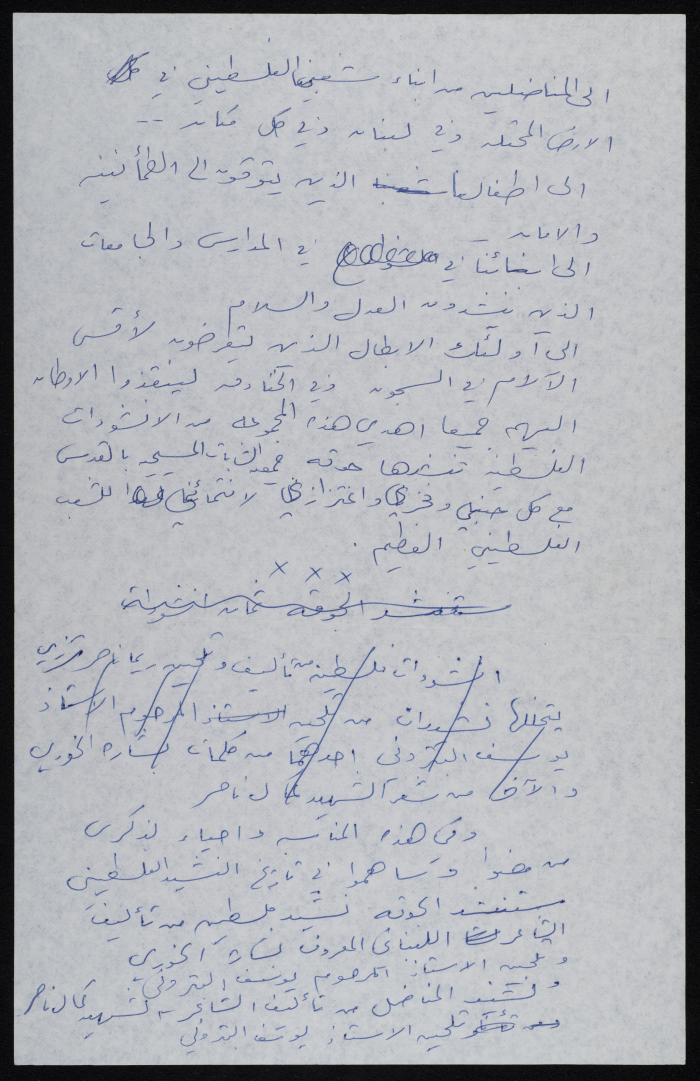 الى المناضلين من ابناء شعبنا الفلسطيني في
الارض المحتلة وفي لبنان وفي كل مكان --
الى اطفالنا الذين يتوقون الى الطمأنينة
والامان
الى ابنائنا في في المدارس والجامعات
الذين ينشدون العدل والسلام
الى أولئك الابطال الذين يتعرضون لأقسى
الآلام في السجون وفي الخنادق لينقذوا الاوطان
اليهم جميعا اهدي هذه المجموعة من الانشودات
الفلسطينية تنشرها جوقة جمعية الشابات المسيحية بالقدس
مع كل حبي وفخري واعتزازي لانتمائي للشعب
الفلسطيني العظيم .
x x x
ستنشد الجوقة ثمان انشودات
انشودات فلسطينية من تأليف وتلحين ريما ناصر ترزي
يتخللها نشيدان من تلحين الاستاذ المرحوم الاستاذ
يوسف البتروني احدهما من كلمات بشارة الخوري
والآخر من شعر الشهيد كمال ناصر
وفي هذه المناسبة واحياء لذكرى
من مضوا وساهموا في تاريخ النشيد الفلسطيني
ستنشد الجوقة نشيد فلسطين من تأليف
الشاعر اللبناني المعروف بشارة الخوري
وتلحين الاستاذ المرحوم يوسف البتروني
ونشيد المناضل من تأليف الشاعر الشهيد كمال ناصر
تلحين الاستاذ يوسف البتروني